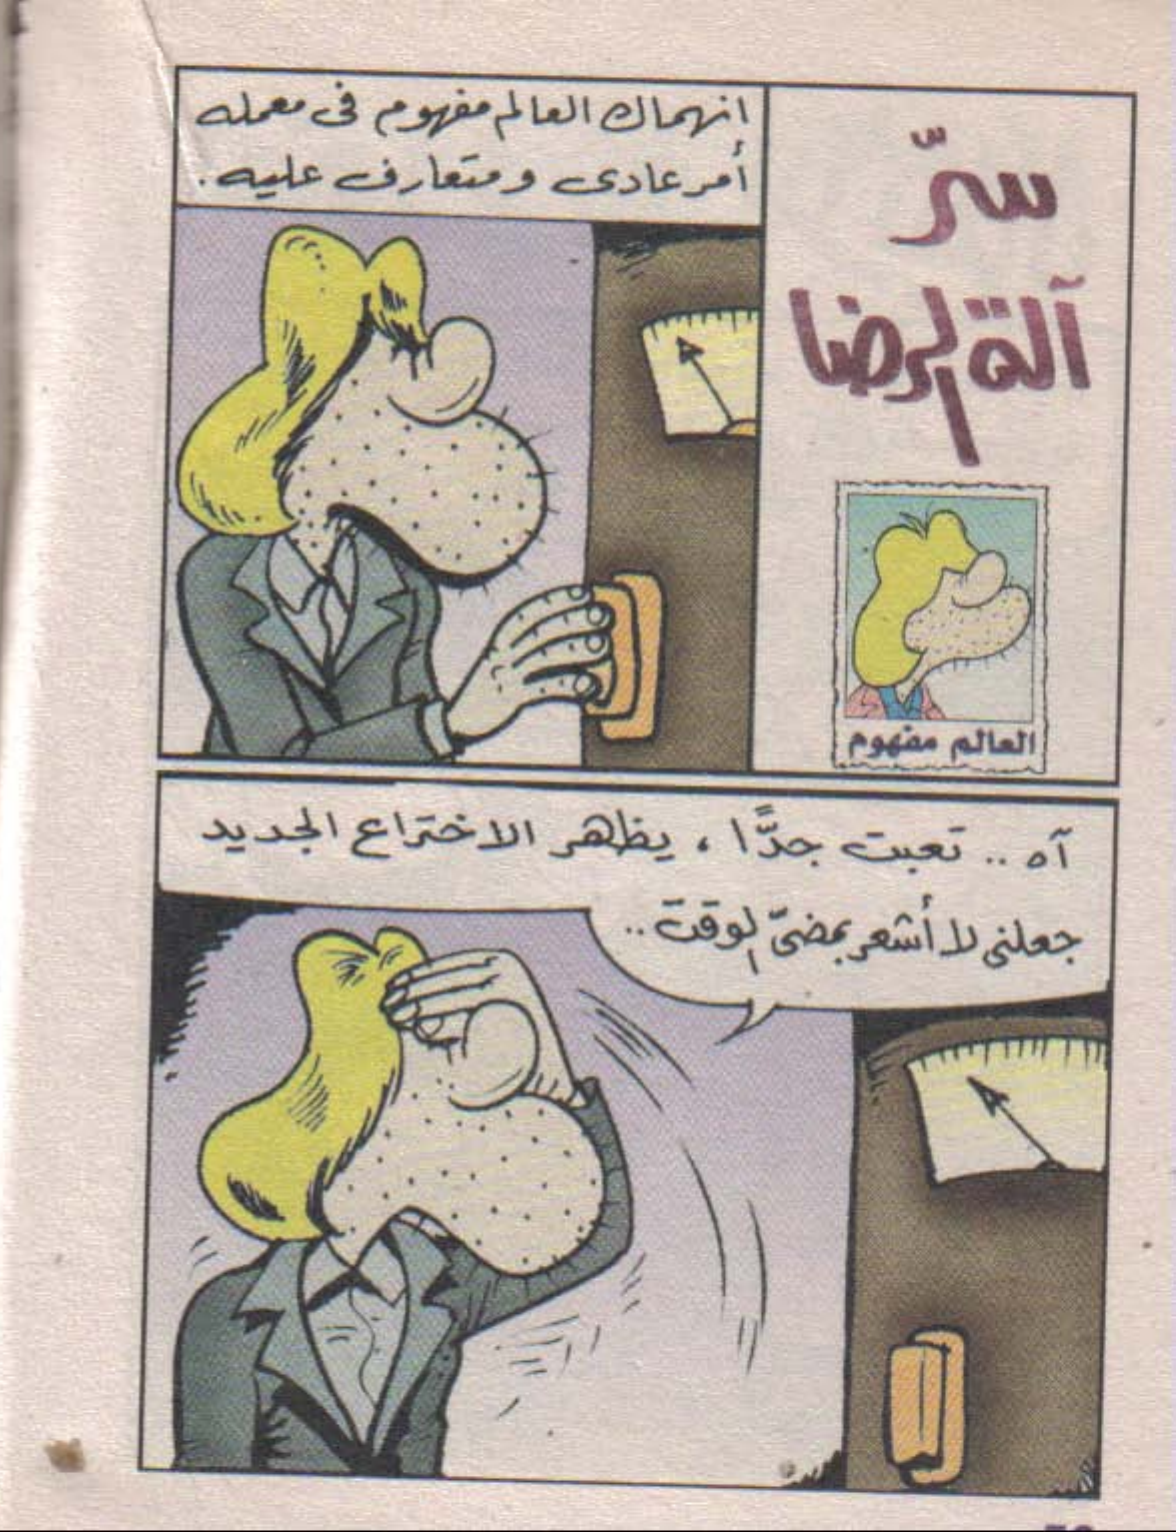 سرّ
آلة الرضا
العالم مفهوم
انهماك العالم مفهوم فى معمله
أمر عادى ومتعارف عليه.
آه .. تعبت جدًّا ، يظهر الاختراع الجديد
جعلنى لا أشعر بمضىّ الوقت ..